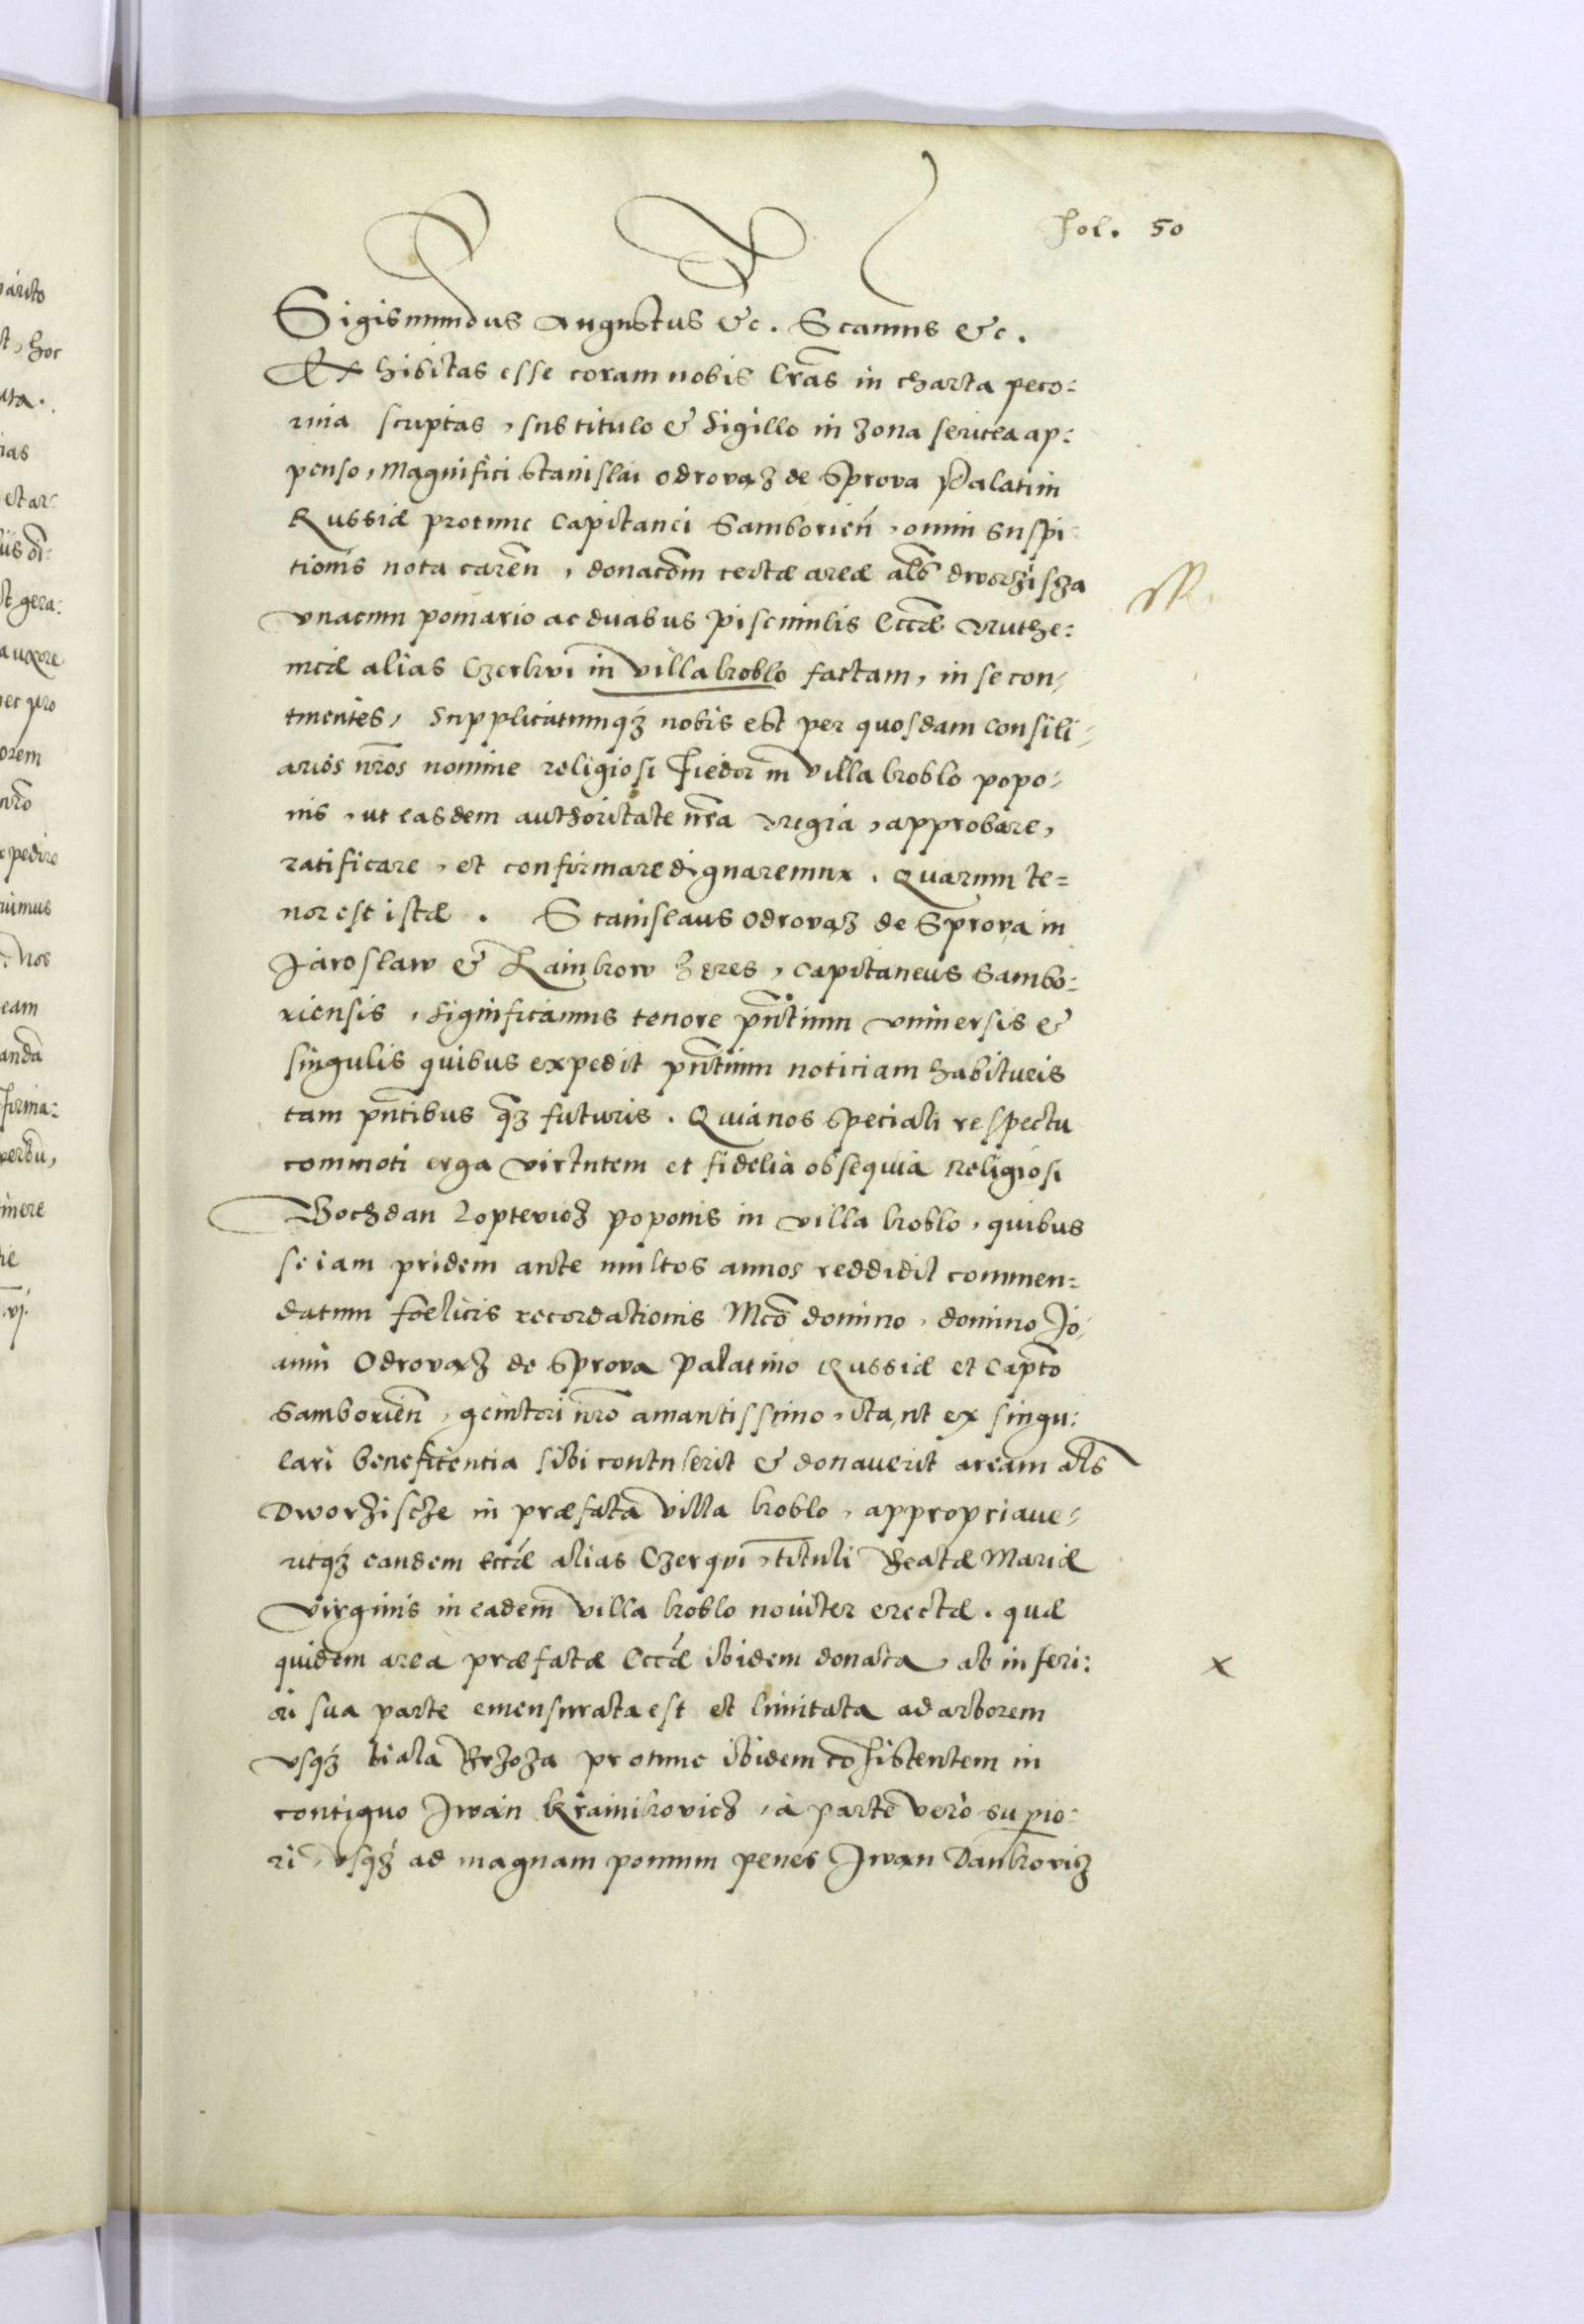 fol. 50
Sigismundus Augustus &c. Scimus &c.
Exhibitas esse coram nobis lrãs in charta peco:
rina scriptas, sub titulo & sigillo in zona sericea ap:
penso, Magnifici Stanislai Odrovaz de Sprova Palatini
Russiæ protunc Capitanei Samborień, omni suspi:
tionis nota caren̄, donacõm certæ areæ als dworzisza
vnacum pomario ac duabus piscinulis Eccłæ Ruthe:
nicæ alias Czerkwi in villa koblo factam, in se con:
tinentes, Supplicatumq3 nobis est per quosdam consili:
arios nr̃os nomine religiosi Fiedor in villa koblo popo:
nis, ut easdem authoritate nr̃a regia, approbare,
ratificare, et confirmare dignaremur. Quarum te=
nor est istæ. Stanislaus Odrovaz de Sprova in
Jaroslaw & Kaimkow heres, Capitaneus Sambo:
riensis, Significamus tenore pñtium vniversis &
singulis quibus expedit pñtium noticiam habituris
tam pñtibus q̃3 futuris. Quia nos speciali respectu
commoti erga virtutem et fidelia obsequia Religiosi
Bochdan Lopteviez poponis in villa koblo, quibus
se iam pridem ante multos annos reddidit commen=
datum fœlicis recordationis Mcõ domino, domino Jo:
anni Odrovaz de Sprova Palatino Russiæ et Capto
Samborien̄, genitori nr̃o amantissimo, ita, ut ex singu:
lari beneficentia sibi contulerit & donauerit aream als
Dworzische in præfata villa koblo, appropriaue:
ritq3 eandem Eccłæ alias Czerqvi, tituli Beatæ Mariæ
Virginis in eadem villa koblo noviter erectæ. quæ
quidem area præfatæ Eccłæ ibidem donata, ab inferi:
ori sua parte emensurata est et limitata ad arborem
vsq3 biala Brzoza protunc ibidem cõsistentem in
contiguo Jwan krainikovicz, à parte vero supio:
ri, vsq3 ad magnam pomum penes Jwan Dankoviz
x